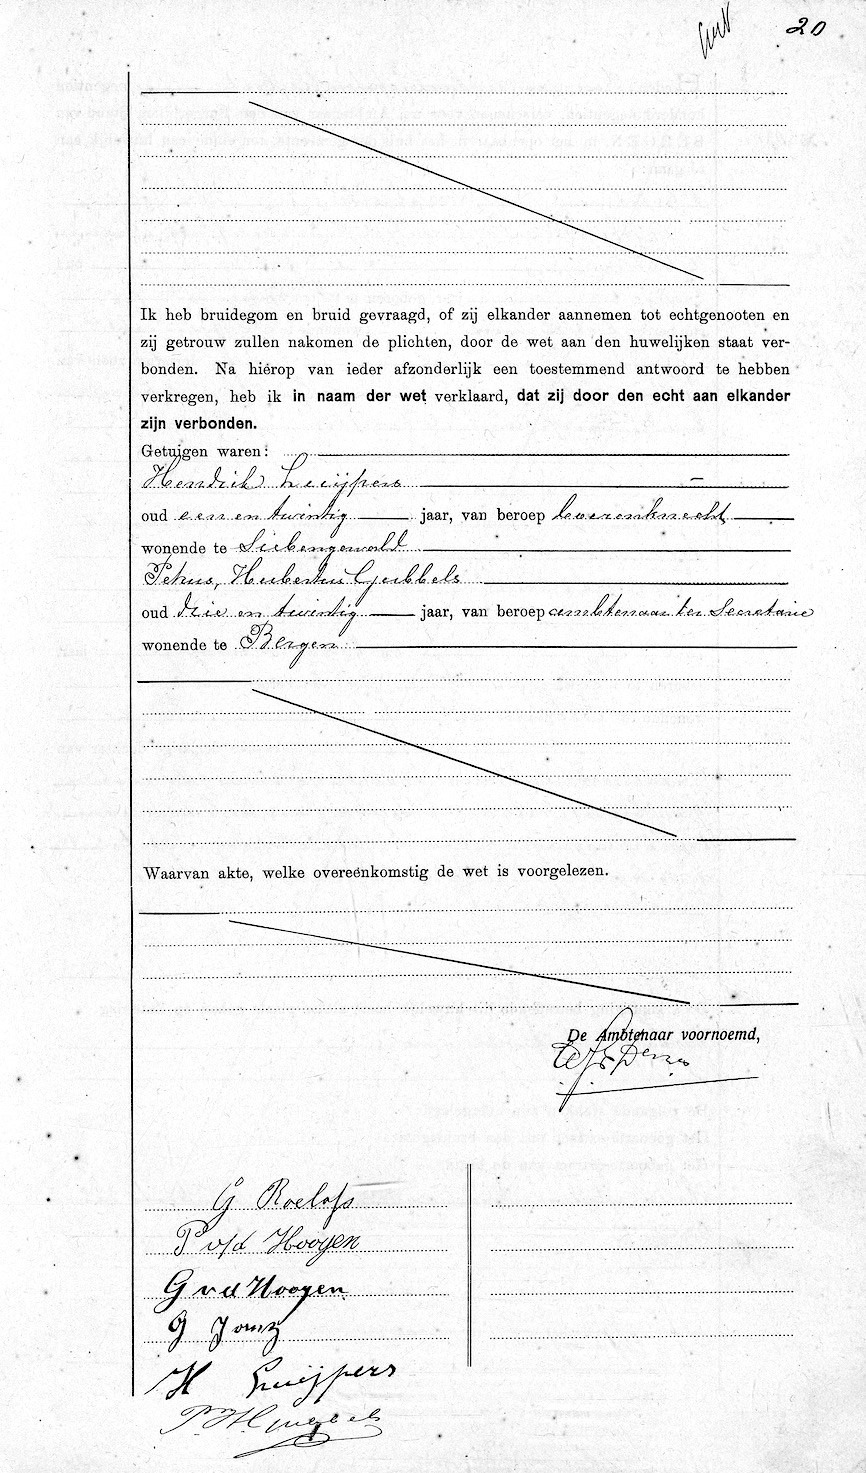 20
Ik heb bruidegom en bruid gevraagd, of zij elkander aannemen tot echtgenooten en
zij getrouw zullen nakomen de plichten, door de wet aan den huwelijken staat ver-
bonden. Na hierop van ieder afzonderlijk een toestemmend antwoord te hebben
verkregen, heb ik in naam der wet verklaard, dat zij door den echt aan elkander
zijn verbonden.
Getuigen waren:
Hendrik Kuijpers
oud een en twintig jaar, van beroep boerenknecht
wonende te Siebengewald
Petrus, Hubertus Gubbels
oud drie en twintig jaar, van beroep ambtenaar ter Secretarie
wonende te Bergen
Waarvan akte, welke overeenkomstig de wet is voorgelezen.
De Ambtenaar voornoemd,
G Roelofs
P v/d Hoogen
G v d Hoogen
G
H Kuijpers
P. H. Gubbels